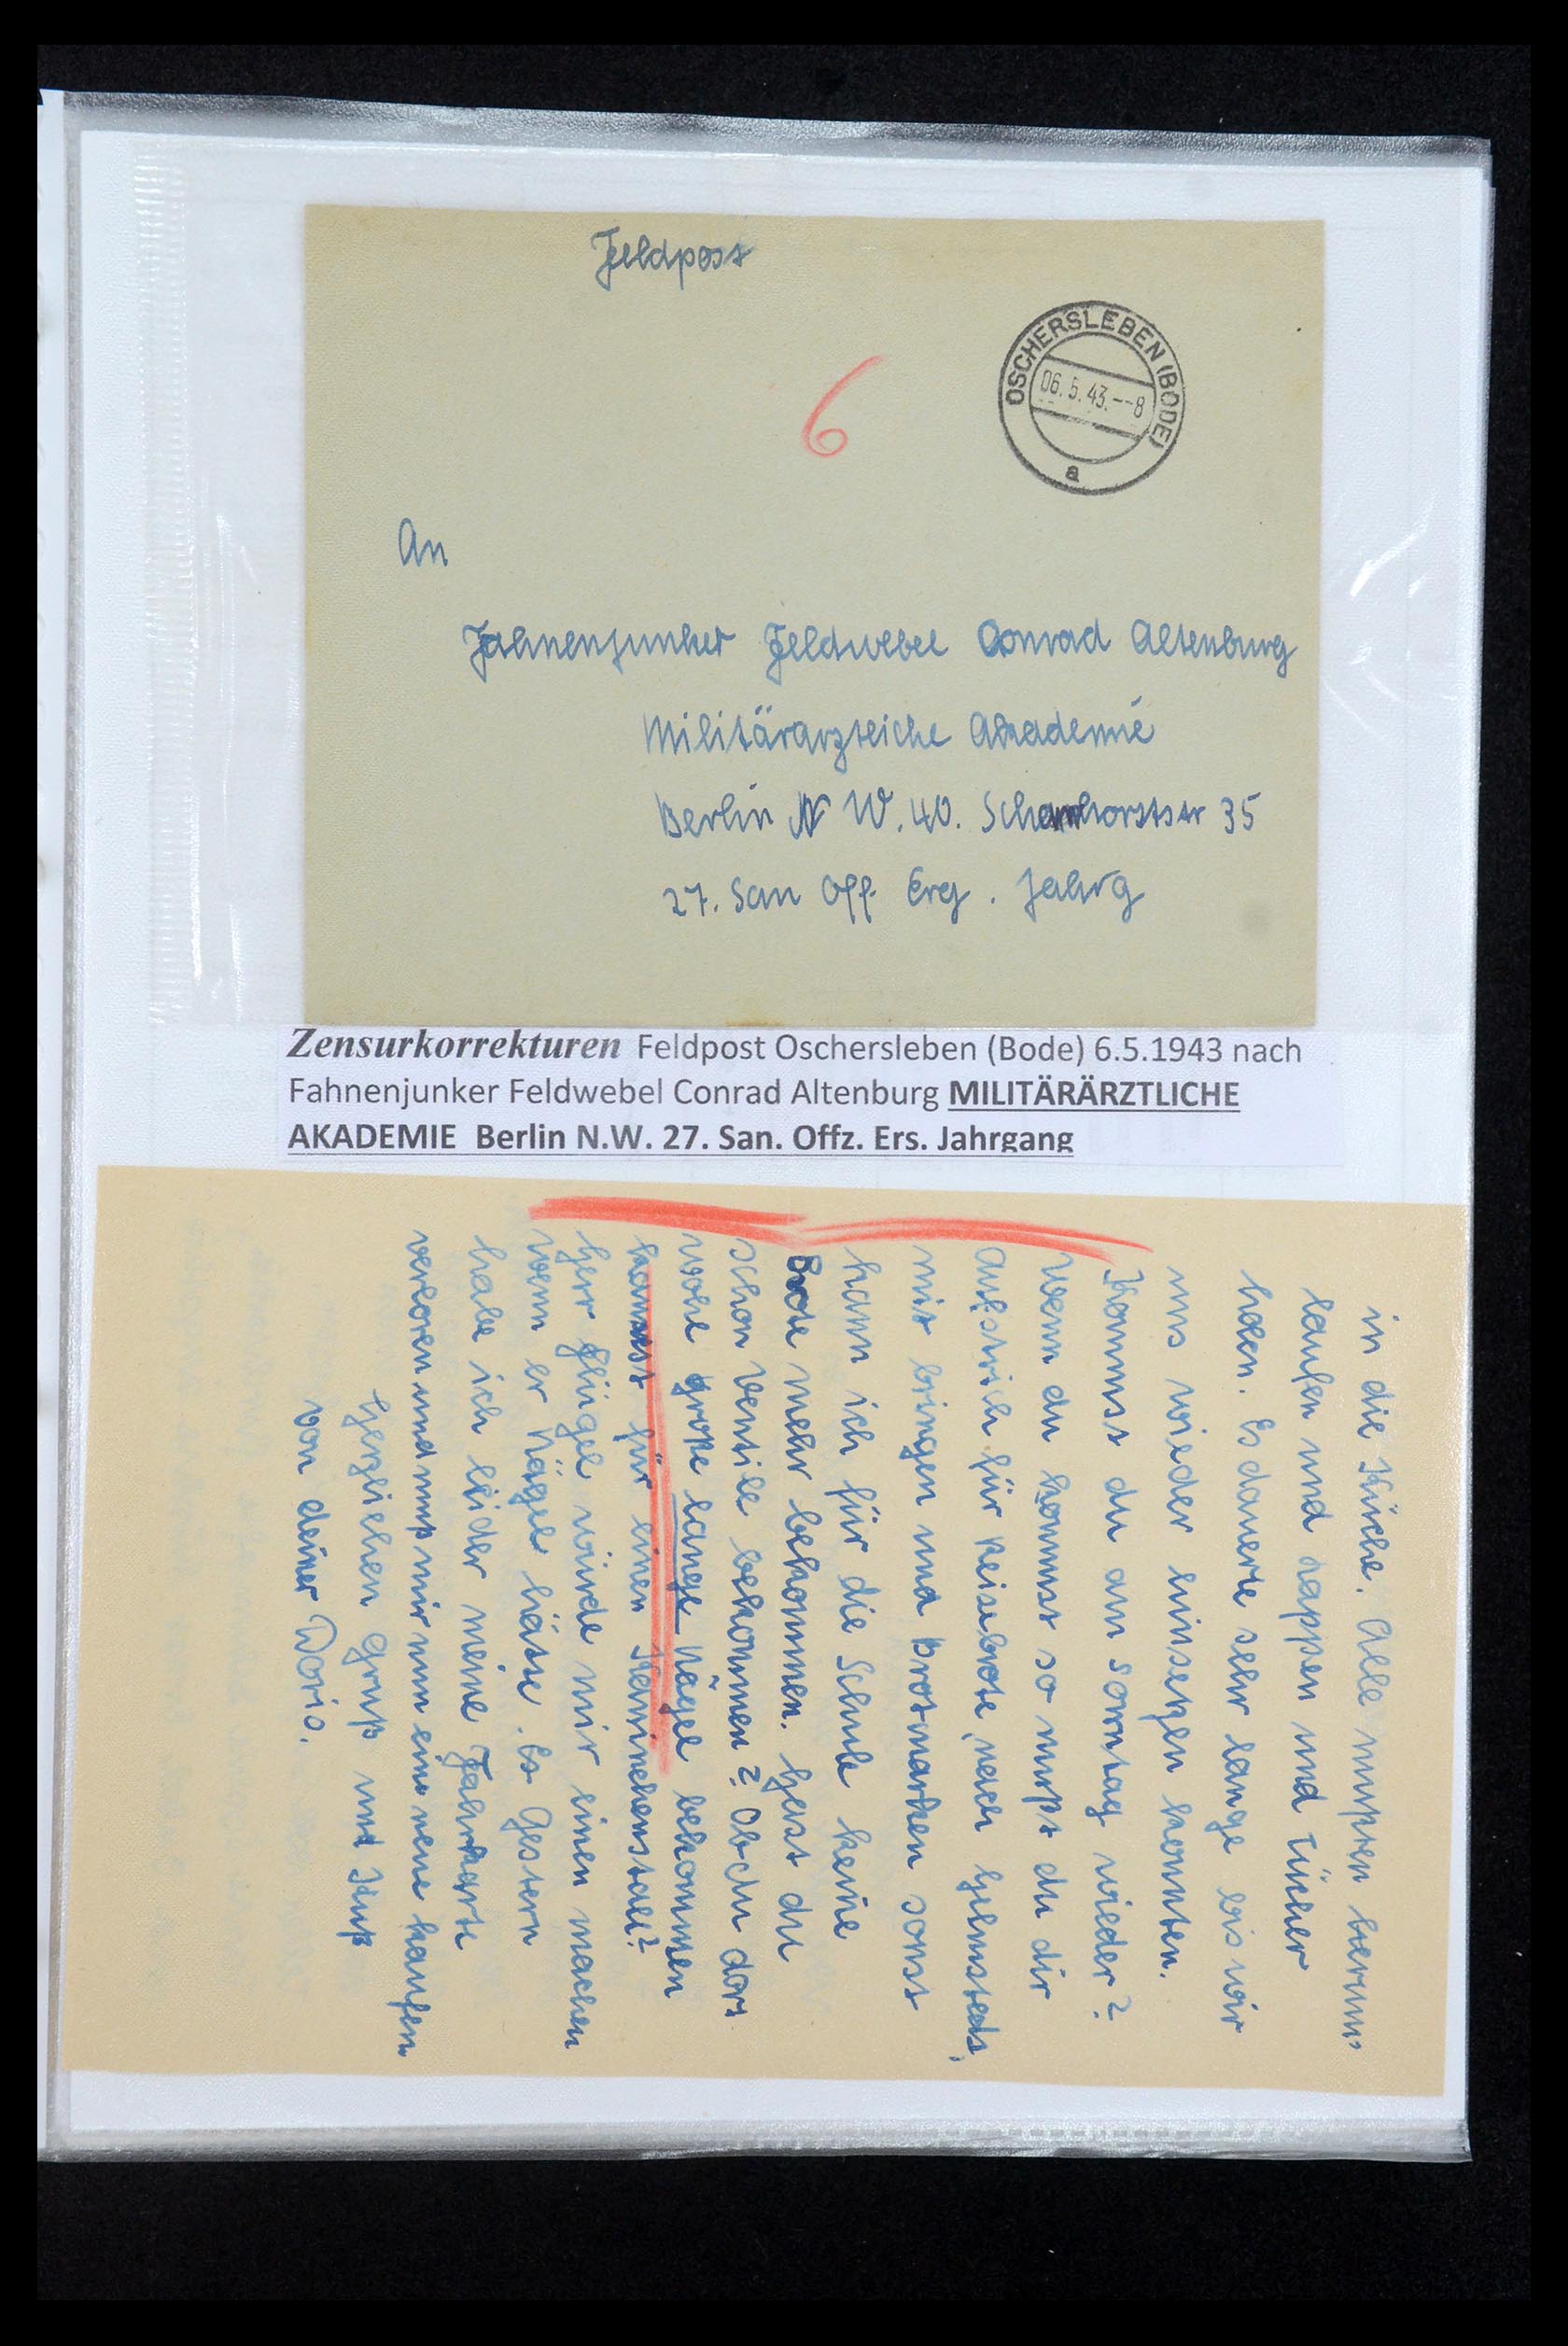 Feldpost
OSCHERSLEBEN (BODE)
06.5.43.--8
a
6
An
Fahnenjunker Feldwebel Conrad Altenburg
Militärarzteiche Akademie
Berlin N W. 40. Scharnhorststr 35
27. San Off. Erg. Jahrg
Zensurkorrekturen Feldpost Oschersleben (Bode) 6.5.1943 nach
Fahnenjunker Feldwebel Conrad Altenburg MILITÄRÄRZTLICHE
AKADEMIE Berlin N.W. 27. San. Offz. Ers. Jahrgang
in die Küche. Alle mußten herum„
laufen und Lappen und Tücher
holen. Es dauerte sehr lange bis wir
uns wieder hinsetzen konnten.
Kommst du am Sonntag wieder?
Wenn du kommst so mußt du dir
Aufstrich für Reisebrote, nach Helmstedt,
mit bringen und Brotmarken sonst
kann ich für die Schule keine
Brote mehr bekommen. Hast du
schon Ventile bekommen? Ob du dort
wohl große lange Nägel bekommen
kannst für einen Kaninchenstall?
Herr Flügel würde mir einen machen
wenn er Nägel hätte. Es Gestern
habe ich leider meine Fahrkarte
verloren und muß mir nun eine neue kaufen.
Herzlichen Gruß und Kuß
von deiner Doris.